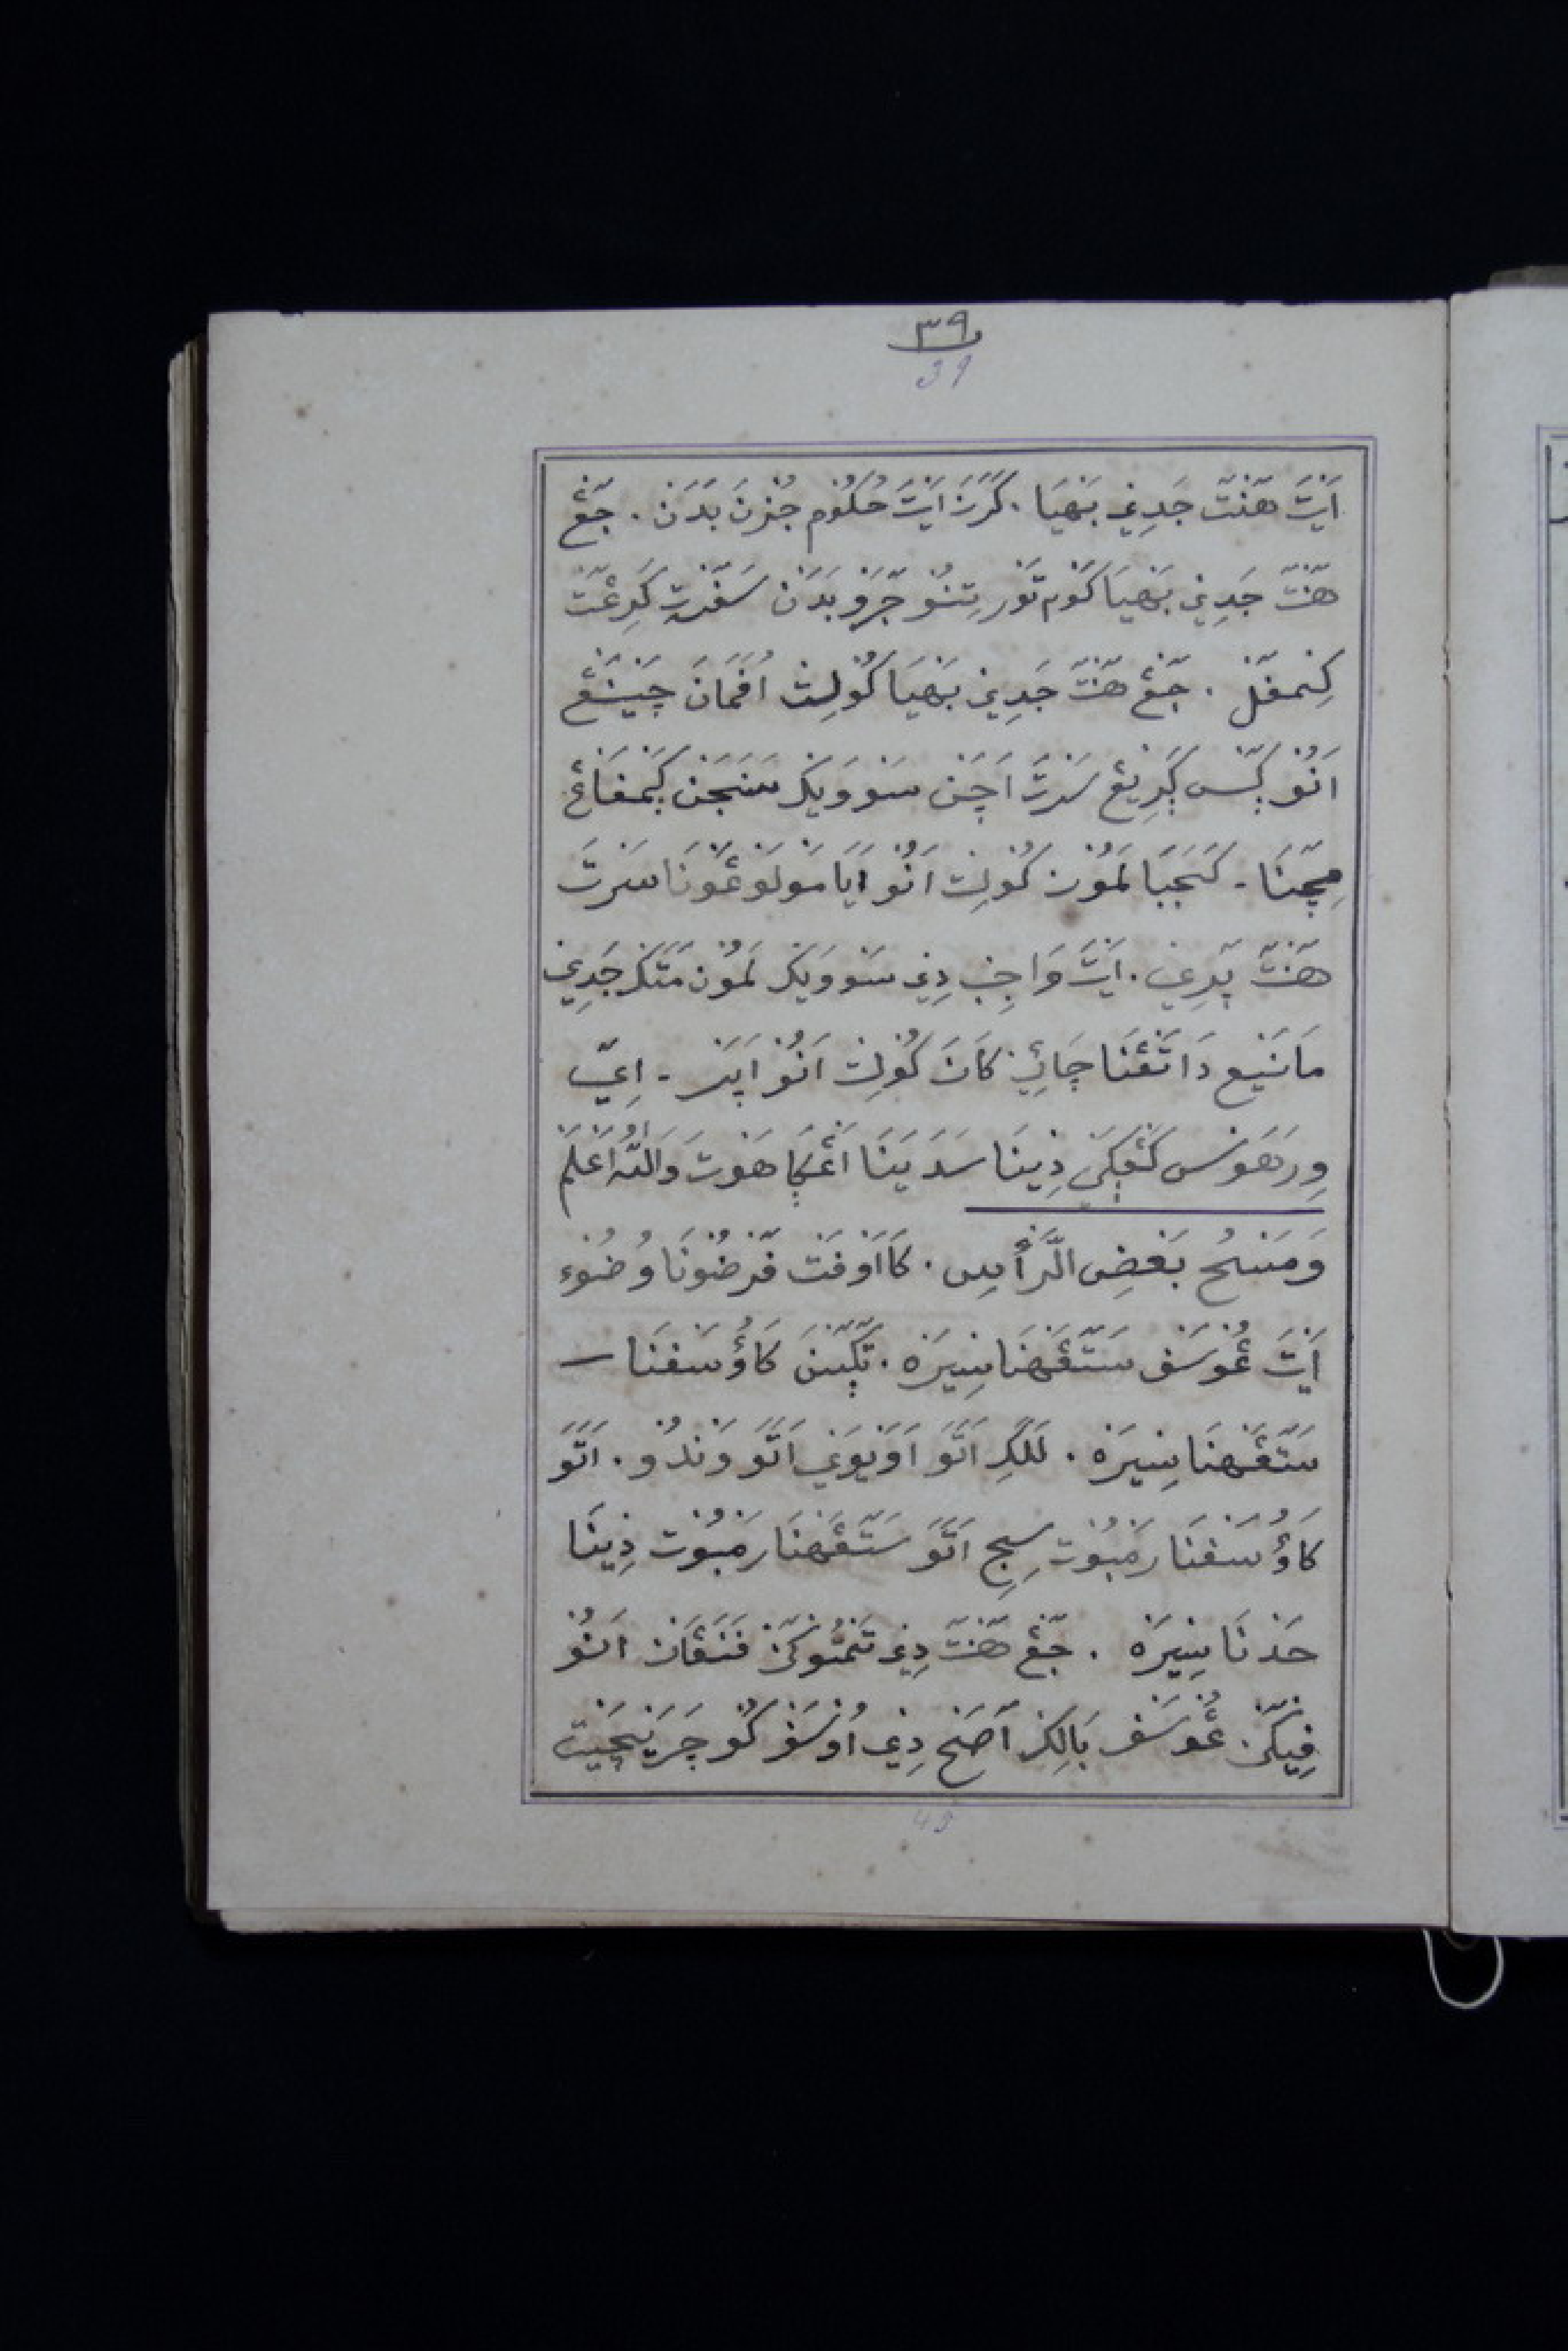 ٣٩
39
اَيْتَ هَنْتَ جَدِيْ بَهَيَا. كَرَنَ اَيْتَ حُكُوْم جُزْنَ بَدَنَ. جَڠْ
هَنْتَ جَدِيْ بَهَيَا كَوْم تَوْر تِنُوْ جَرَوْ بَدَنْ سَفَرْتِ كَرِڠَتْ
كِنْمَفَلْ. جَڠْ هَنْتَ جَدِيْ بَهَيَا كُوْلِتْ اُفَمَانَ چَيْنْڠْ
اَنُوْ بَكَسْ كَرِيْڠْ سَرْتَ اَچَنْ سَوْوَيَكْ سَنَجَنْ كَمْفَاڠْ
مِچَهْنَا. كَجَبَا لَمُوْنْ كُوْلِتْ اَنُوْ اَيَا مَوْلَوْغَوْنَا سَرْتَ
هَنْتَ پَرِيْ. اَيْتَ وَاجِبْ دِيْ سَوْوَيَكْ لَمُوْنْ مَتَكْ جَدِيْ
مَانَيْع دَاتَڠْنَا چَائِيْ كَانَ كُوْلِتْ اَنُوْ اَپَرْ - اِيَّ
وِرَهَوْسْ كَڠْكَيْ دِيْنَا سَدَيَنَا اَڠْكَا هَوْتَ وَاللهُ اَعْلَمْ
وَمَسْحُ بَعْضِ الرَّأْسِ. كَااَوْفَتْ فَرْضُوْنَا وُضُوْء
اَيْتَ ڠُوْسَفْ سَتَڠَهْنَا سِيْرَهْ. تَكَسْنَ كَاوُسَفْنَا
سَتَڠَهْنَا سِيْرَهْ. لَلَكِ اَتَوَ اَوَيْوَيْ اَتَوَ وَنْدُوْ. اَتَوَ
كَاوُسَفْنَا رَمْبُوْت سِجِ اَتَوَ سَتَڠَهْنَا رَمْبُوْت دِيْنَا
حَدْنَا سِيْرَهْ. جَڠْ هَنْتَ دِيْ تَنْتُوْكَنْ فَنَڠَانْ اَنُوْ
فِيْكَنْ ڠُوْسَفْ بَالِكَرْ اَصَحْ دِيْ اُوْسَفْ كُوْ جَرَيْجَيْتْ